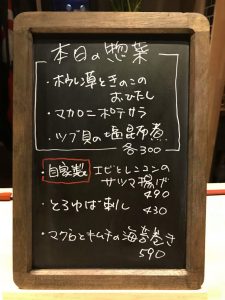 本日の惣菜
・ホウレン草ときのこの
おひたし
・マカロニポテサラ
・ツブ貝の塩昆布煮
各300
・自家製 エビとレンコンの
サツマ揚げ
490
・とろゆば刺し
430
・マグロとキムチの海苔巻き
590